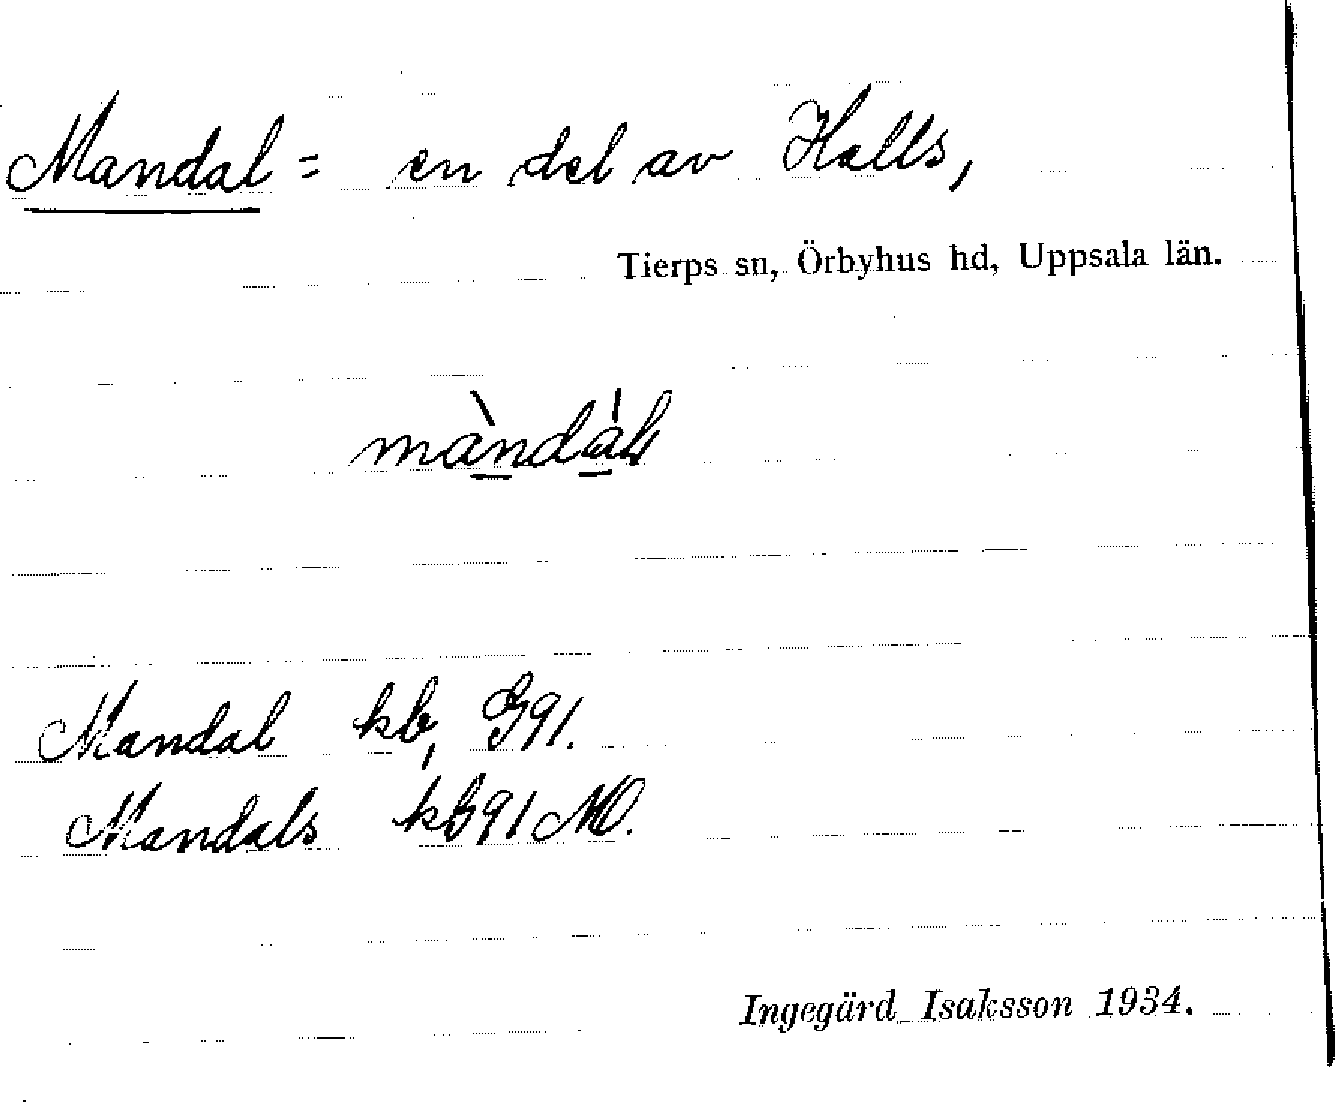 Mandal = en del av Halls,
Tierps sn, Örbyhus hd, Uppsala län.
màndàl
Mandal kb, G91.
Mandals kb91 MO.
Ingegärd Isaksson 1934.